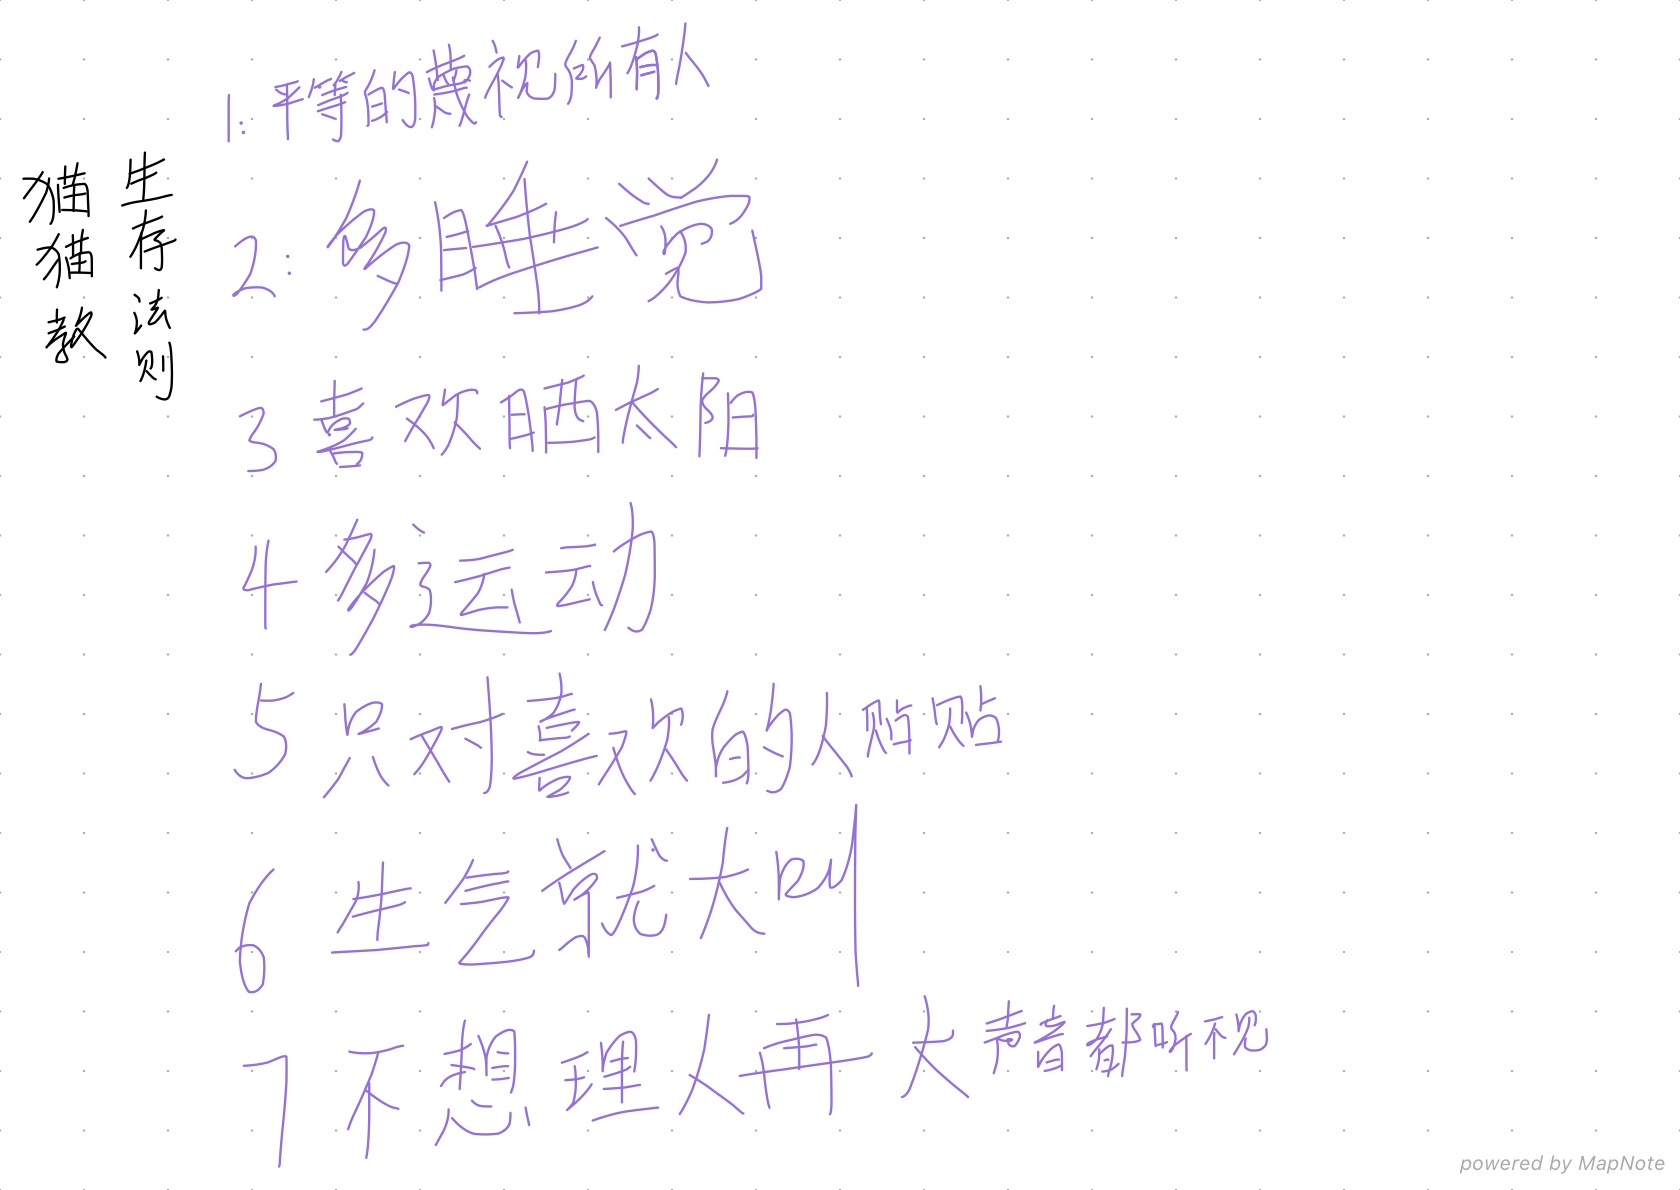 猫猫教
生存法则
1:平等的蔑视所有人
2:多睡觉
3 喜欢晒太阳
4 多运动
5 只对喜欢的人贴贴
6 生气就大叫
7 不想理人再大声音都听不见
powered by MapNote